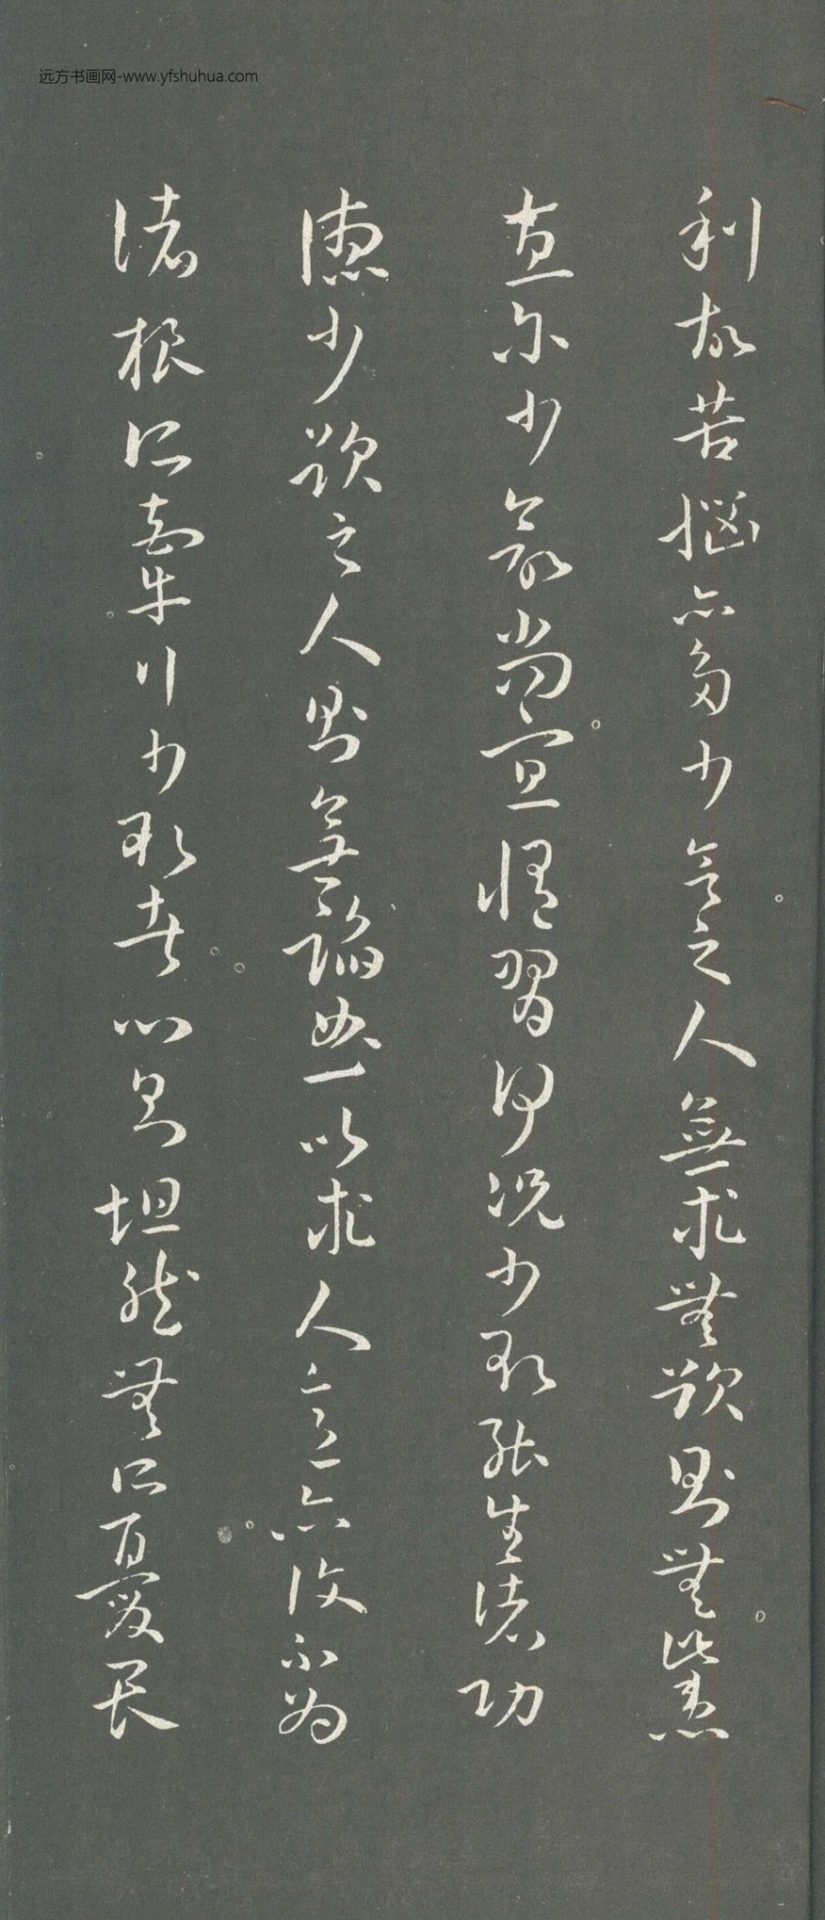 远方书画网-www.yfshuhua.com
利故苦惱亦多少欲之人無求無欲則無此患
直尔少欲尚宜脩習何況少欲能生諸功
德少欲之人則無諂曲以求人意亦復不為
諸根所牽行少欲者心則坦然無所憂畏